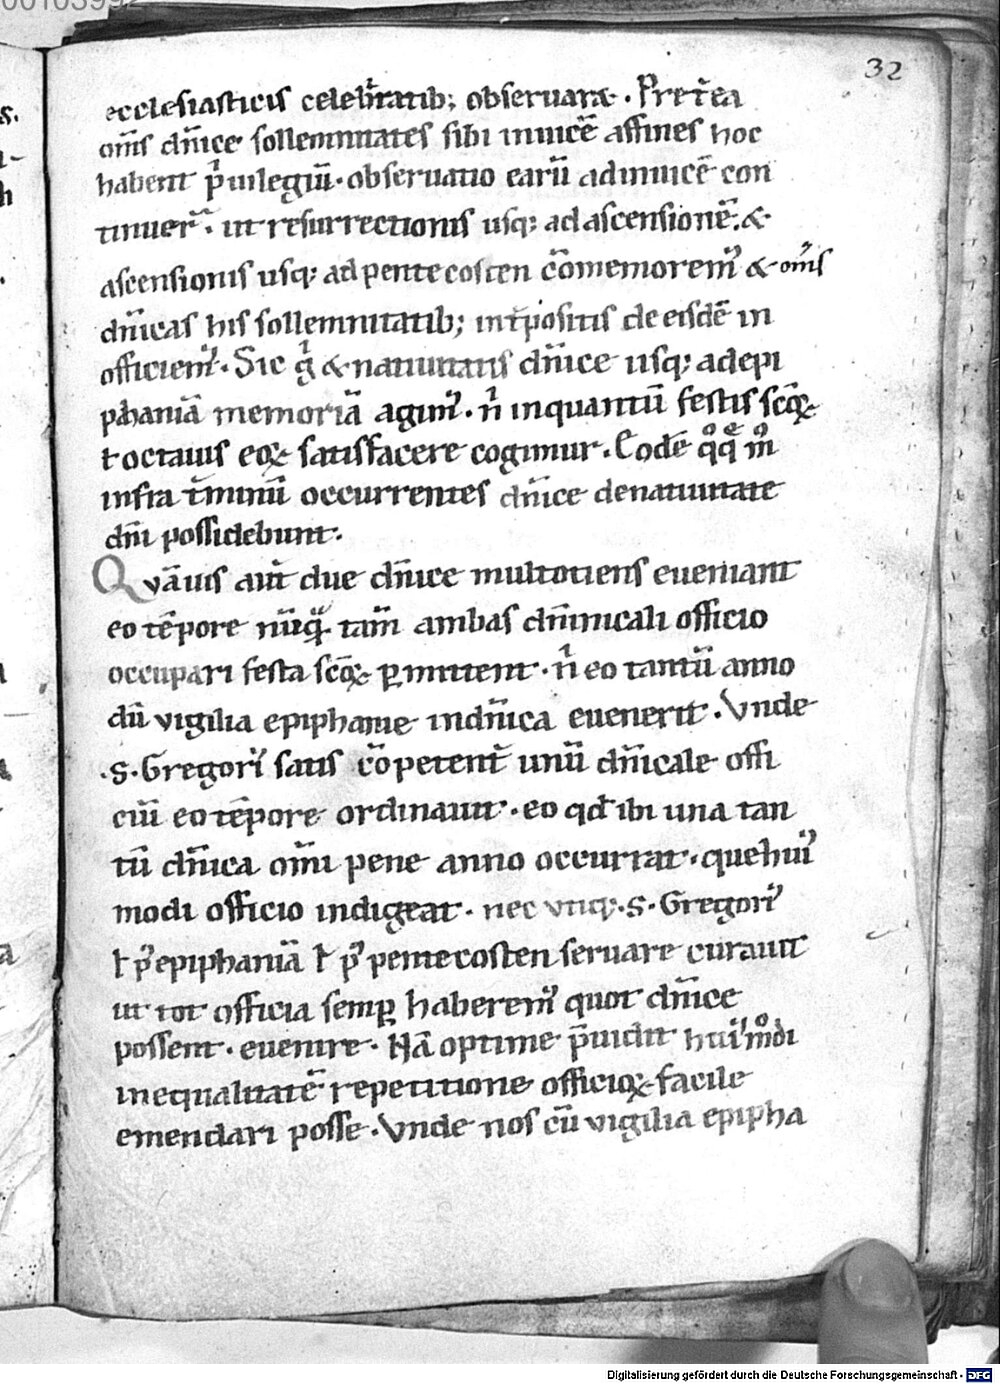 00103992
32
ecclesiasticis celeb̄ratib; obseruata. Pret̄ea
om̄s dn̄ice sollemnitates sibi inuicē affines hoc
habent p̓uilegiū. obseruatio earū adinuicē con
tinuet̄. ut resurrectionis usq; ad ascensionē. &
ascensionis usq; ad pentecosten cōmemorem᷒ & om̄s
dn̄icas his sollemnitatib; int̄positis de eisdē in
officiem᷒. Sic g̓ & natiuitatis dn̄ice usq; ad epi
phaniā memoriā agim᷒. n̄ inquantū festis scōꝝ
ł octauis eoꝝ satisfacere cogimur. Eodē qͦqͤ mͦ
infra t̄minū occurrentes dn̄ice de natiuitate
dn̄i possidebunt.
Quāuis aut̄ due dn̄ice multotiens eueniant
eo tēpore nūqͣ tam̄ ambas dn̄inicali officio
occupari festa scōꝝ ꝑmittent. n̄ eo tantū anno
dū vigilia epiphanie in dn̄ica euenerit. Vnde
.S. Gregori᷒ satis cōpetent̄ unū dn̄icale offi
ciū eo tēpore ordinauit. eo qd̄ ibi una tan
tū dn̄ica om̄i pene anno occurrat. que hui᷒
modi officio indigeat. nec utiq;. S. Gregori᷒
ł p᷒ epiphaniā ł p᷒ pentecosten seruare curauit
ut tot officia semꝑ haberem᷒ quot dn̄ice
possent. euenire. Nā optime p̄uidit hui᷒mͦdi
inequalitatē repetitione officioꝝ facile
emendari posse. Vnde nos cū vigilia epipha
Digitalisierung gefördert durch die Deutsche Forschungsgemeinschaft - DFG